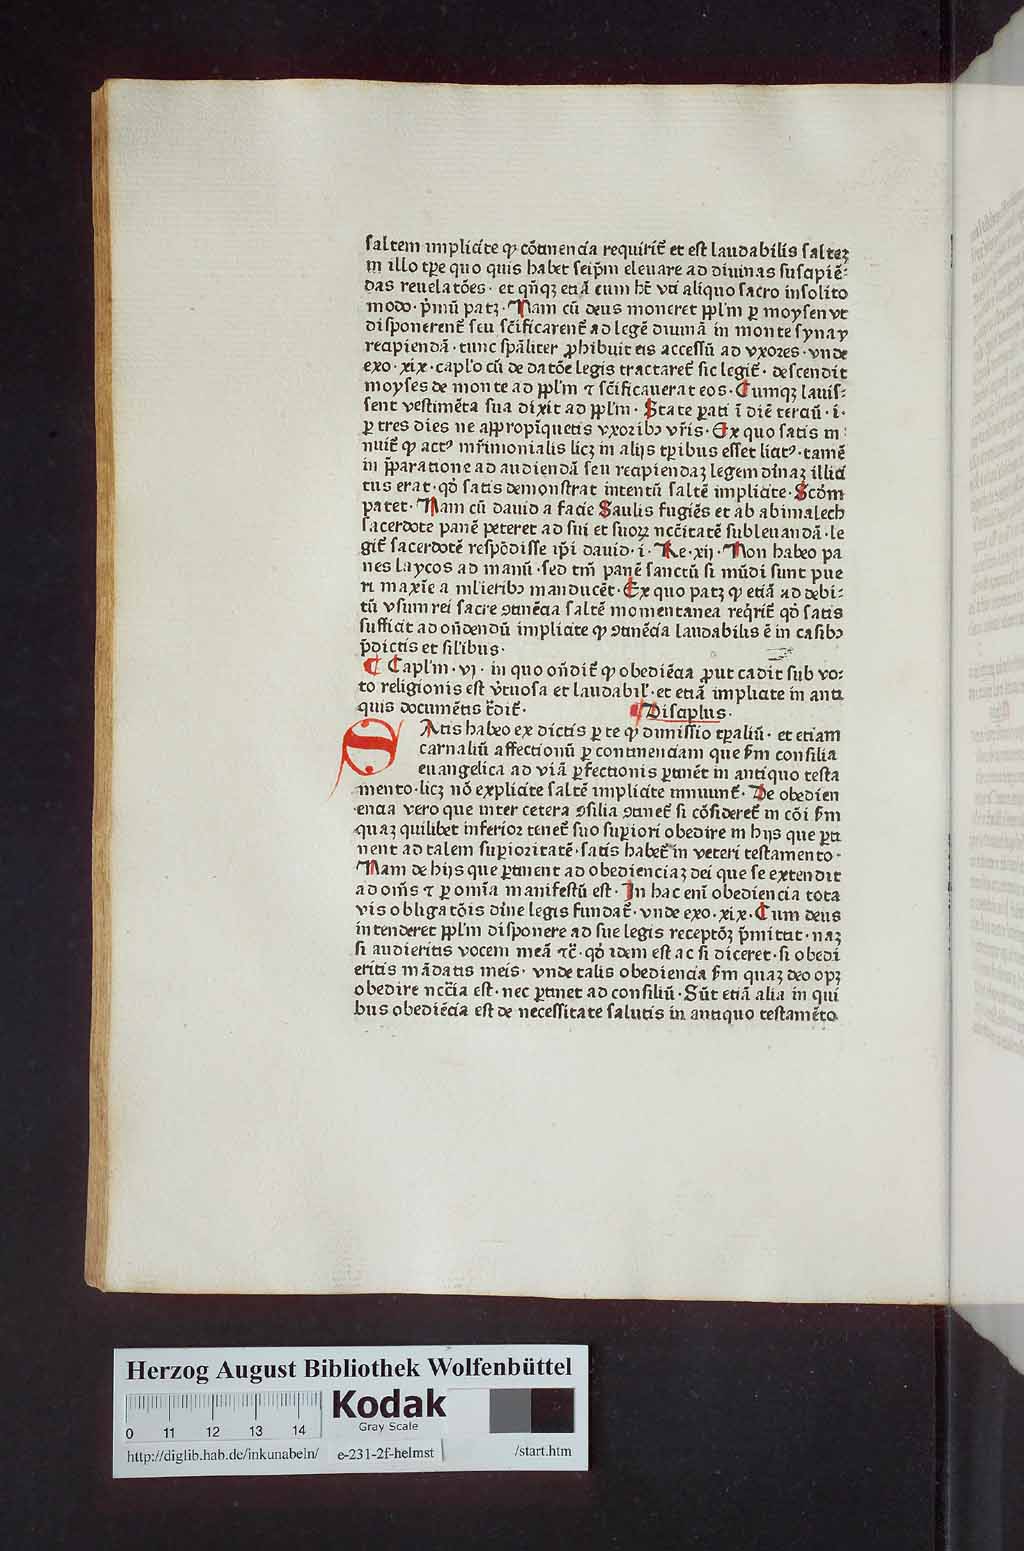 saltem implicite ꝙ cōtinencia requirit᷒ et est laudabilis saltez
in illo tꝑe quo quis habet seip̄m eleuare ad diuinas suscipiē⸗
das reuelatōes · et qn̄qꝫ etiā cum hꝫ vti aliquo sacro insolito
modo · p̄mū patꝫ · Nam cū deus moneret ppl'm ꝑ moysen vt
disponerent᷒ seu sc̄ificarent᷒ ad legē diuinā in monte synay
recipiendā · tunc sp̄aliter ꝓhibuit eis accessū ad vxores · vnde
exo · xix · capl'o cū de datōe legis tractaret᷒ sic legit᷒ · descendit
moyses de monte ad ppl'm ⁊ sc̄ificauerat eos · Cumqꝫ lauis⸗
sent vestimēta sua dixit ad ppl'm · State ꝑati ī diē terciū · i ·
ꝑ tres dies ne appropīquetis vxoribꝫ vr̄is · Ex quo satis in⸗
nuit᷒ ꝙ actꝰ mr̄imonialis licꝫ in alijs tꝑibus esset licitꝰ · tamē
in p̄paratione ad audiendā seu recipiendaꝫ legem diūaꝫ illici
tus erat · qd̄ satis demonstrat intentū saltē implicite · Scd̄m
patet · Nam cū dauid a facie Saulis fugiēs et ab abimalech
sacerdote panē peteret ad sui et suoꝝ nccītatē subleuandā · le
git᷒ sacerdotē respōdisse ip̄i dauid · i · Re · xij · Non habeo pa
nes laycos ad manū · sed tm̄ panē sanctū si mūdi sunt pue
ri maxīe a ml'ieribꝫ manducēt · Ex quo patꝫ ꝙ etiā ad debi⸗
tū vsum rei sacre ꝯtinēcia saltē momentanea req̄rit᷒ qd̄ satis
sufficit ad on̄dendū implicite ꝙ ꝯtinēcia laudabilis ē in casibꝫ
p̄dictis et sil'ibus ·
Capl'm · vj · in quo on̄dit᷒ ꝙ obediēcia ꝓut cadit sub vo⸗
to religionis est v̄tuosa et laudabil' · et etiā implicite in anti
quis documētis t̄dit᷒ · Discipulus ·
SAtis habeo ex dictis ꝑ te ꝙ dimissio tꝑaliū · et etiam
carnaliū affectionū ꝑ continenciam que s̄m consilia
euangelica ad viā ꝑfectionis ꝑtinēt in antiquo testa
mento · licꝫ nō explicite saltē implicite innuunt᷒ · De obedien
encia vero que inter cetera ꝯsilia ꝯtinet᷒ si cōsideret᷒ in cōi s̄m
quaꝫ quilibet inferior tenet᷒ suo suꝑiori obedire in hijs que ꝑti
nent ad talem suꝑioritatē · satis habet᷒ in veteri testamento ·
Nam de hijs que ꝑtinent ad obedienciaꝫ dei que se extendit
ad om̄s ⁊ ꝑ omīa manifestū est · In hac enī obediencia tota
vis obligatōis diīne legis fundat᷒ · vnde exo · xix · Cum deus
intenderet ppl'm disponere ad sue legis receptōꝫ p̄mittit · naꝫ
si audieritis vocem meā ⁊c̄ · qd̄ idem est ac si diceret · si obedi
eritis mādatis meis · vnde talis obediencia s̄m quaꝫ deo opꝫ
obedire nccīa est · nec ꝑtinet ad consiliū · Sūt etiā alia in qui
bus obediēcia est de necessitate salutis in antiquo testamēto
Herzog August Bibliothek Wolfenbüttel
Kodak
Gray Scale
0 11 12 13 14
http://diglib.hab.de/inkunabeln/ e-231-2f-helmst /start.htm